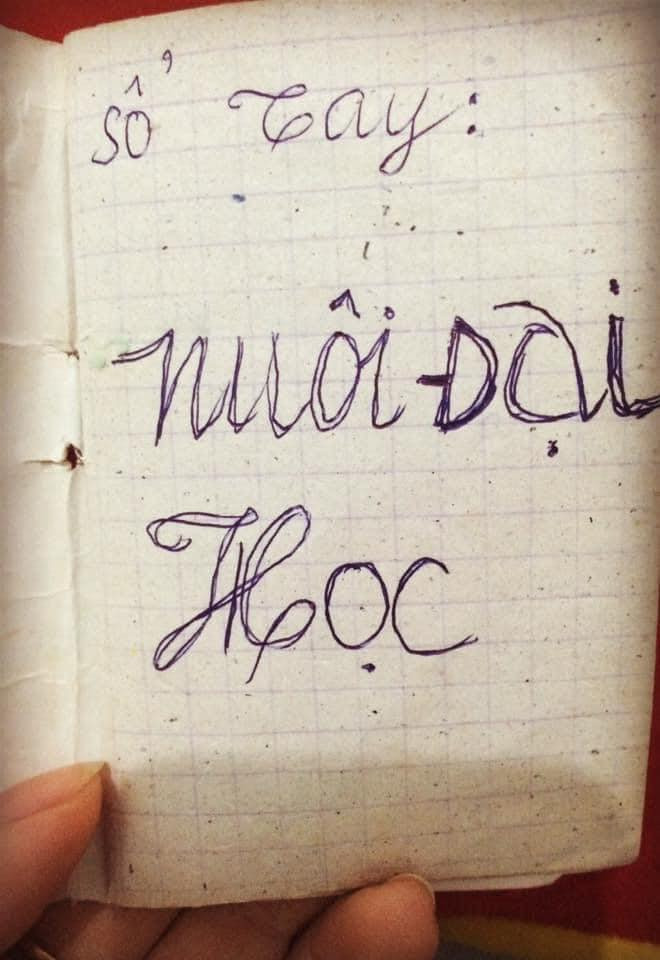 sổ Tay:
nuôi Đại
Học